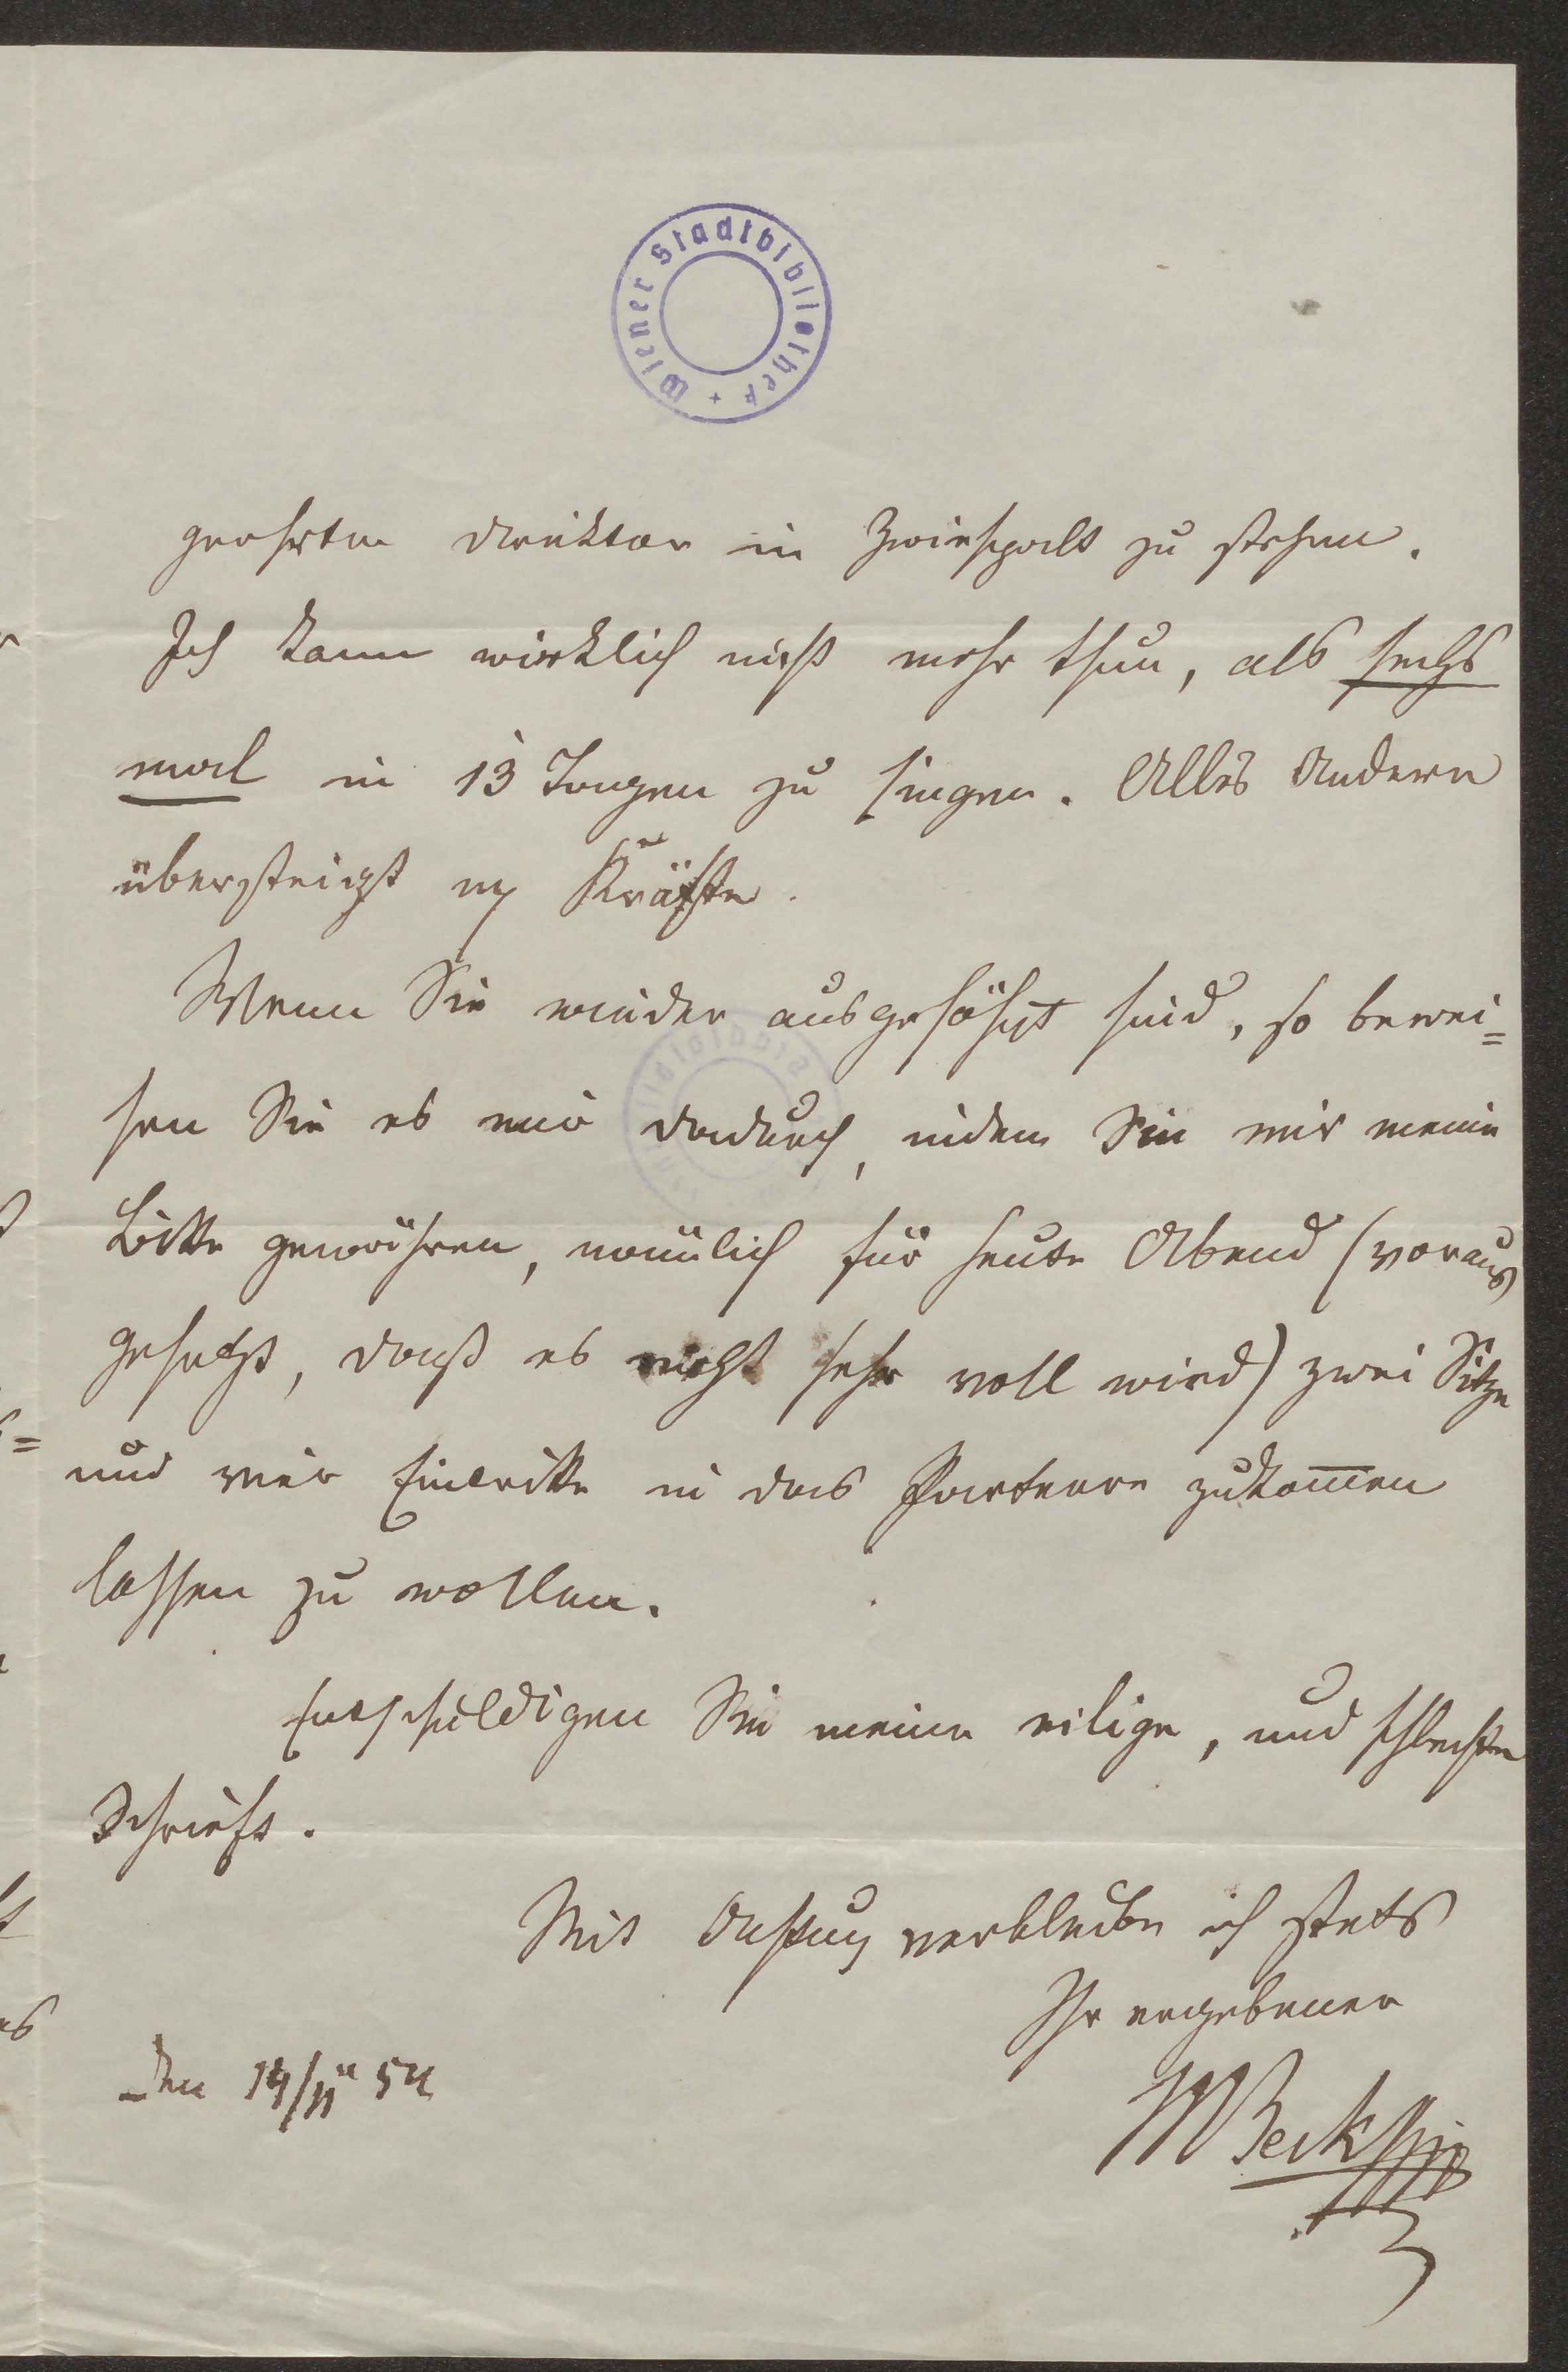 Wiener Stadtbibliothek
geehrten Direktor in Zwiespalt zu stehen.
Ich kann wirklich nicht mehr thun, als sechs
mal in 13 Tagen zu singen. Alles Andere
übersteigt m Kräfte.
Wenn Sie wieder ausgesöhnt sind, so bewei=
sen Sie es mir dadurch, indem Sie mir meine
Bitte gewähren, nämlich für heute Abend (voraus
gesetzt, daß es nicht sehr voll wird) zwei Sitze
und vier Eintritte in das Parterre zukom̅en
lassen zu wollen.
Entschuldigen Sie meine eilige, und schlechte
Schrift.
Mit Achtung verbleibe ich stets
Ihr ergebener
Den 14/II 54
Beck